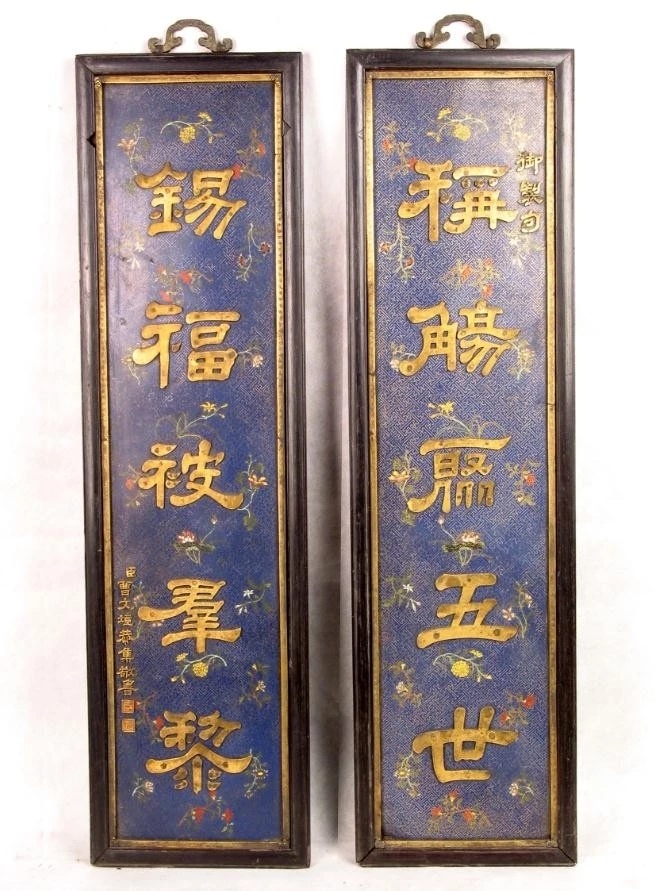 御製句
稱觴聚五世
錫福被羣黎
臣曹文埴恭集敬書